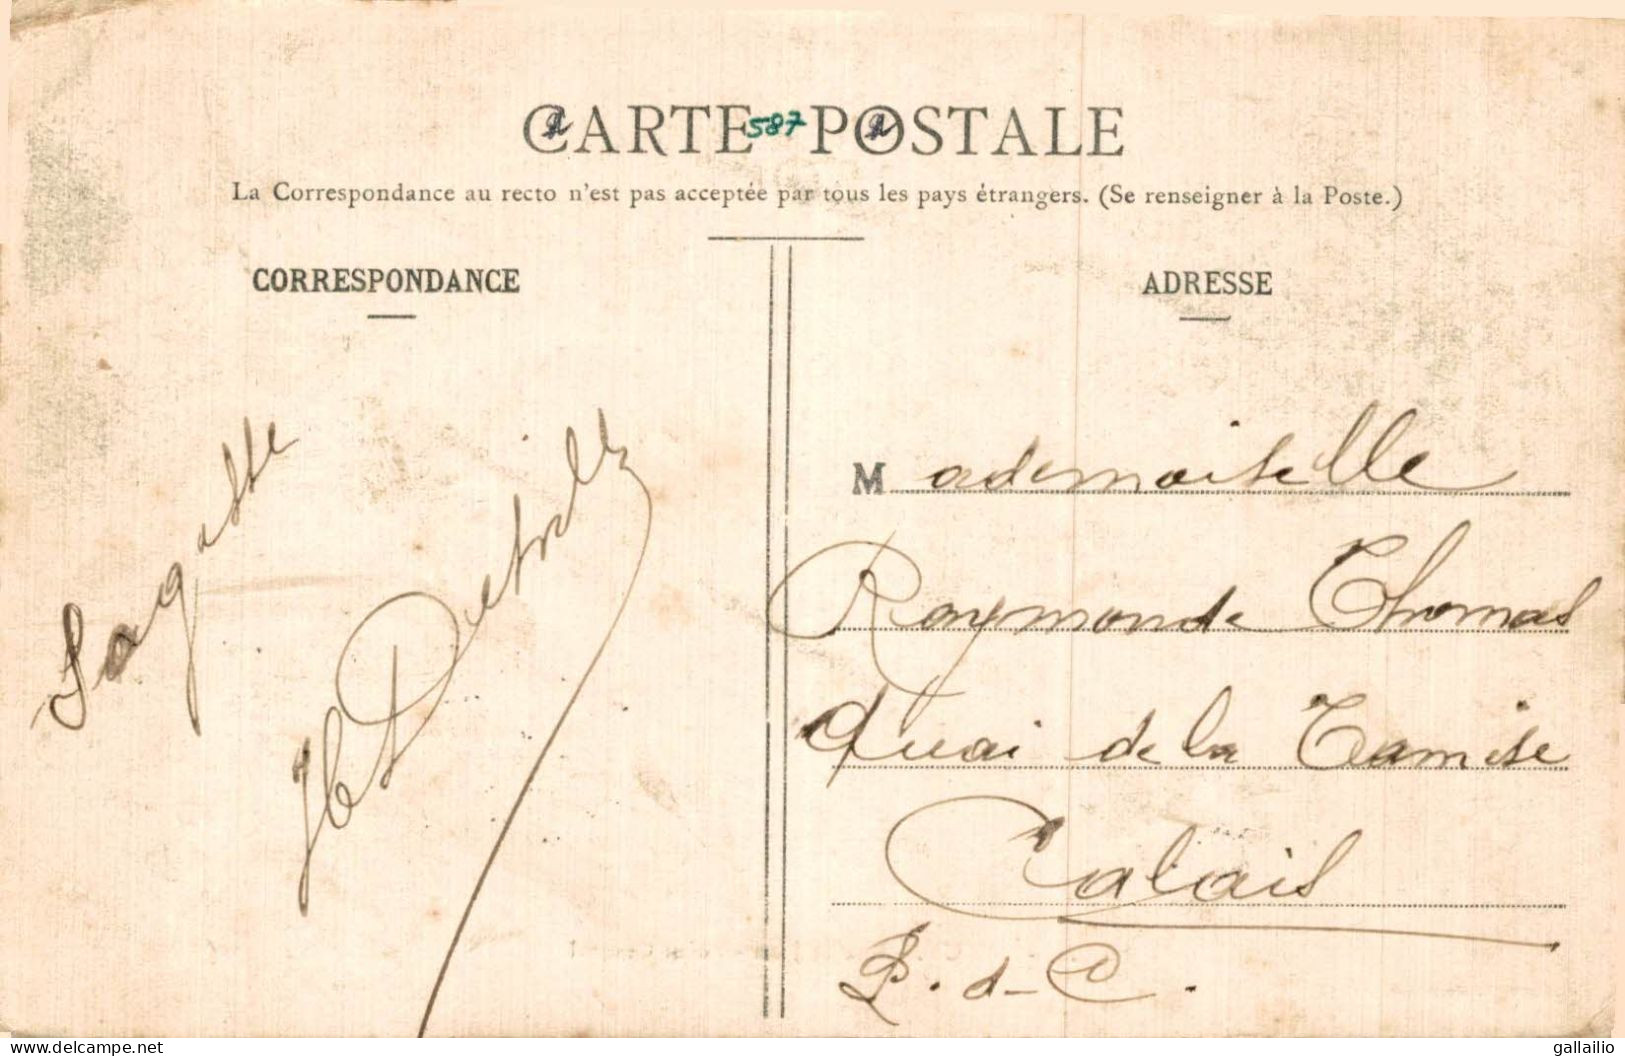 CARTE 587 POSTALE
La Correspondance au recto n'est pas acceptée par tous les pays étrangers. (Se renseigner à la Poste.)
CORRESPONDANCE
ADRESSE
Sangatte
Mademoiselle
Raymonde Thomas
Quai de la Tamise
Calais
P.-d-C.
www.delcampe.net
gallailio